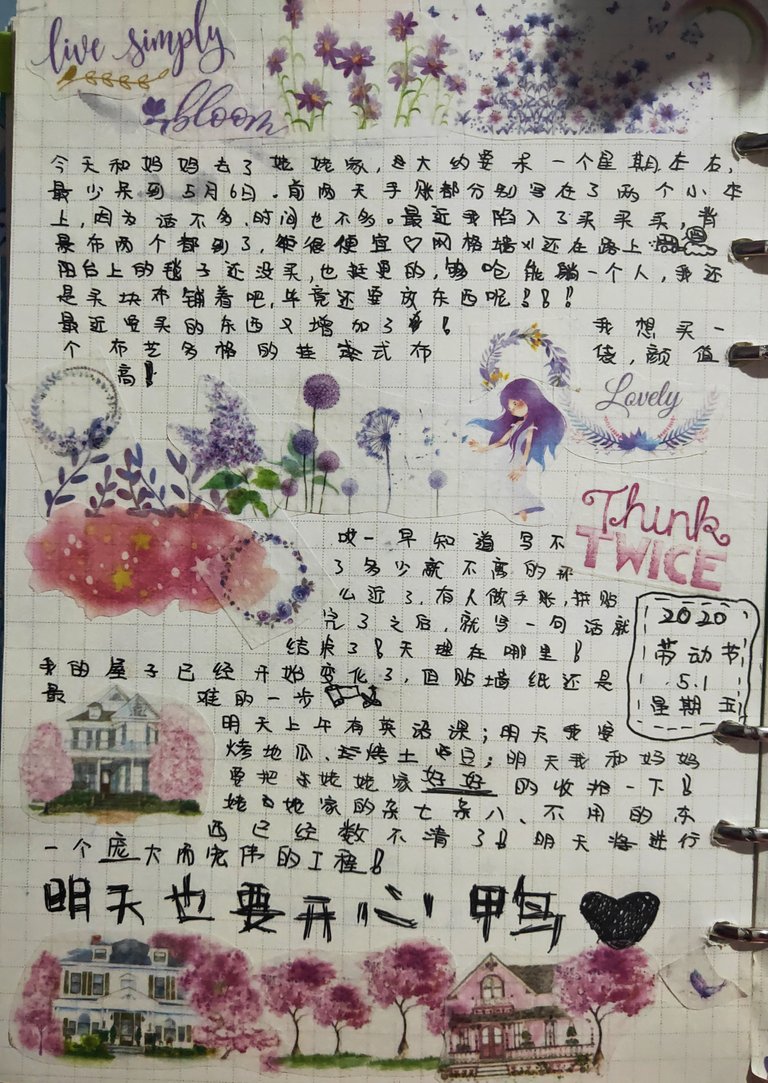 live simply
bloom
今天和妈妈去了姥姥家,大约要呆一个星期左右,
最少呆到5月6日。前两天手账都分别写在了两个小本
上,因为话不多,时间也不多。最近我陷入了买买买,背
景布两个都到了,很便宜♡网格墙还在路上
阳台上的毯子还没买,也挺贵的,够呛能躺一个人,我还
是买块布铺着吧,毕竟还要放东西呢!!!
最近要买的东西又增加了!我想买一
个布艺多格的挂式布袋,颜值
高!
Lovely
Think
TWICE
哎一早知道写不
了多少就不离的那
么近了,有人做手账,拼贴
完了之后,就写一句话就
结束了!天理在哪里!
2020
劳动节
5.1
星期五
我的屋子已经开始变化了,但贴墙纸还是
最难的一步
明天上午有英语课;明天我要
烤地瓜、烤土豆;明天我和妈妈
要把姥姥家好好的收拾一下!
姥姥家的杂七杂八、不用的东
西已经数不清了!明天将进行
一个庞大而宏伟的工程!
明天也要开心鸭